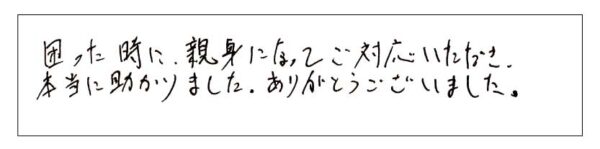 困った時に、親身になってご対応いただき、
本当に助かりました。ありがとうございました。